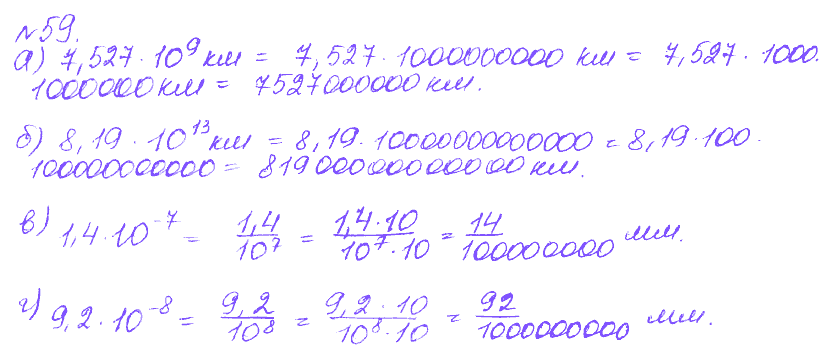 №59.
а) 7,527 · 10⁹ км = 7,527 · 1000000000 км = 7,527 · 1000 ·
1000000 км = 7527000000 км.
б) 8,19 · 10¹³ км = 8,19 · 10000000000000 = 8,19 · 100 ·
100000000000 = 81900000000000 км.
в) 1,4 · 10⁻⁷ = 1,4/10⁷ = 1,4 · 10/10⁷ · 10 = 14/100000000 мм.
г) 9,2 · 10⁻⁸ = 9,2/10⁸ = 9,2 · 10/10⁸ · 10 = 92/1000000000 мм.